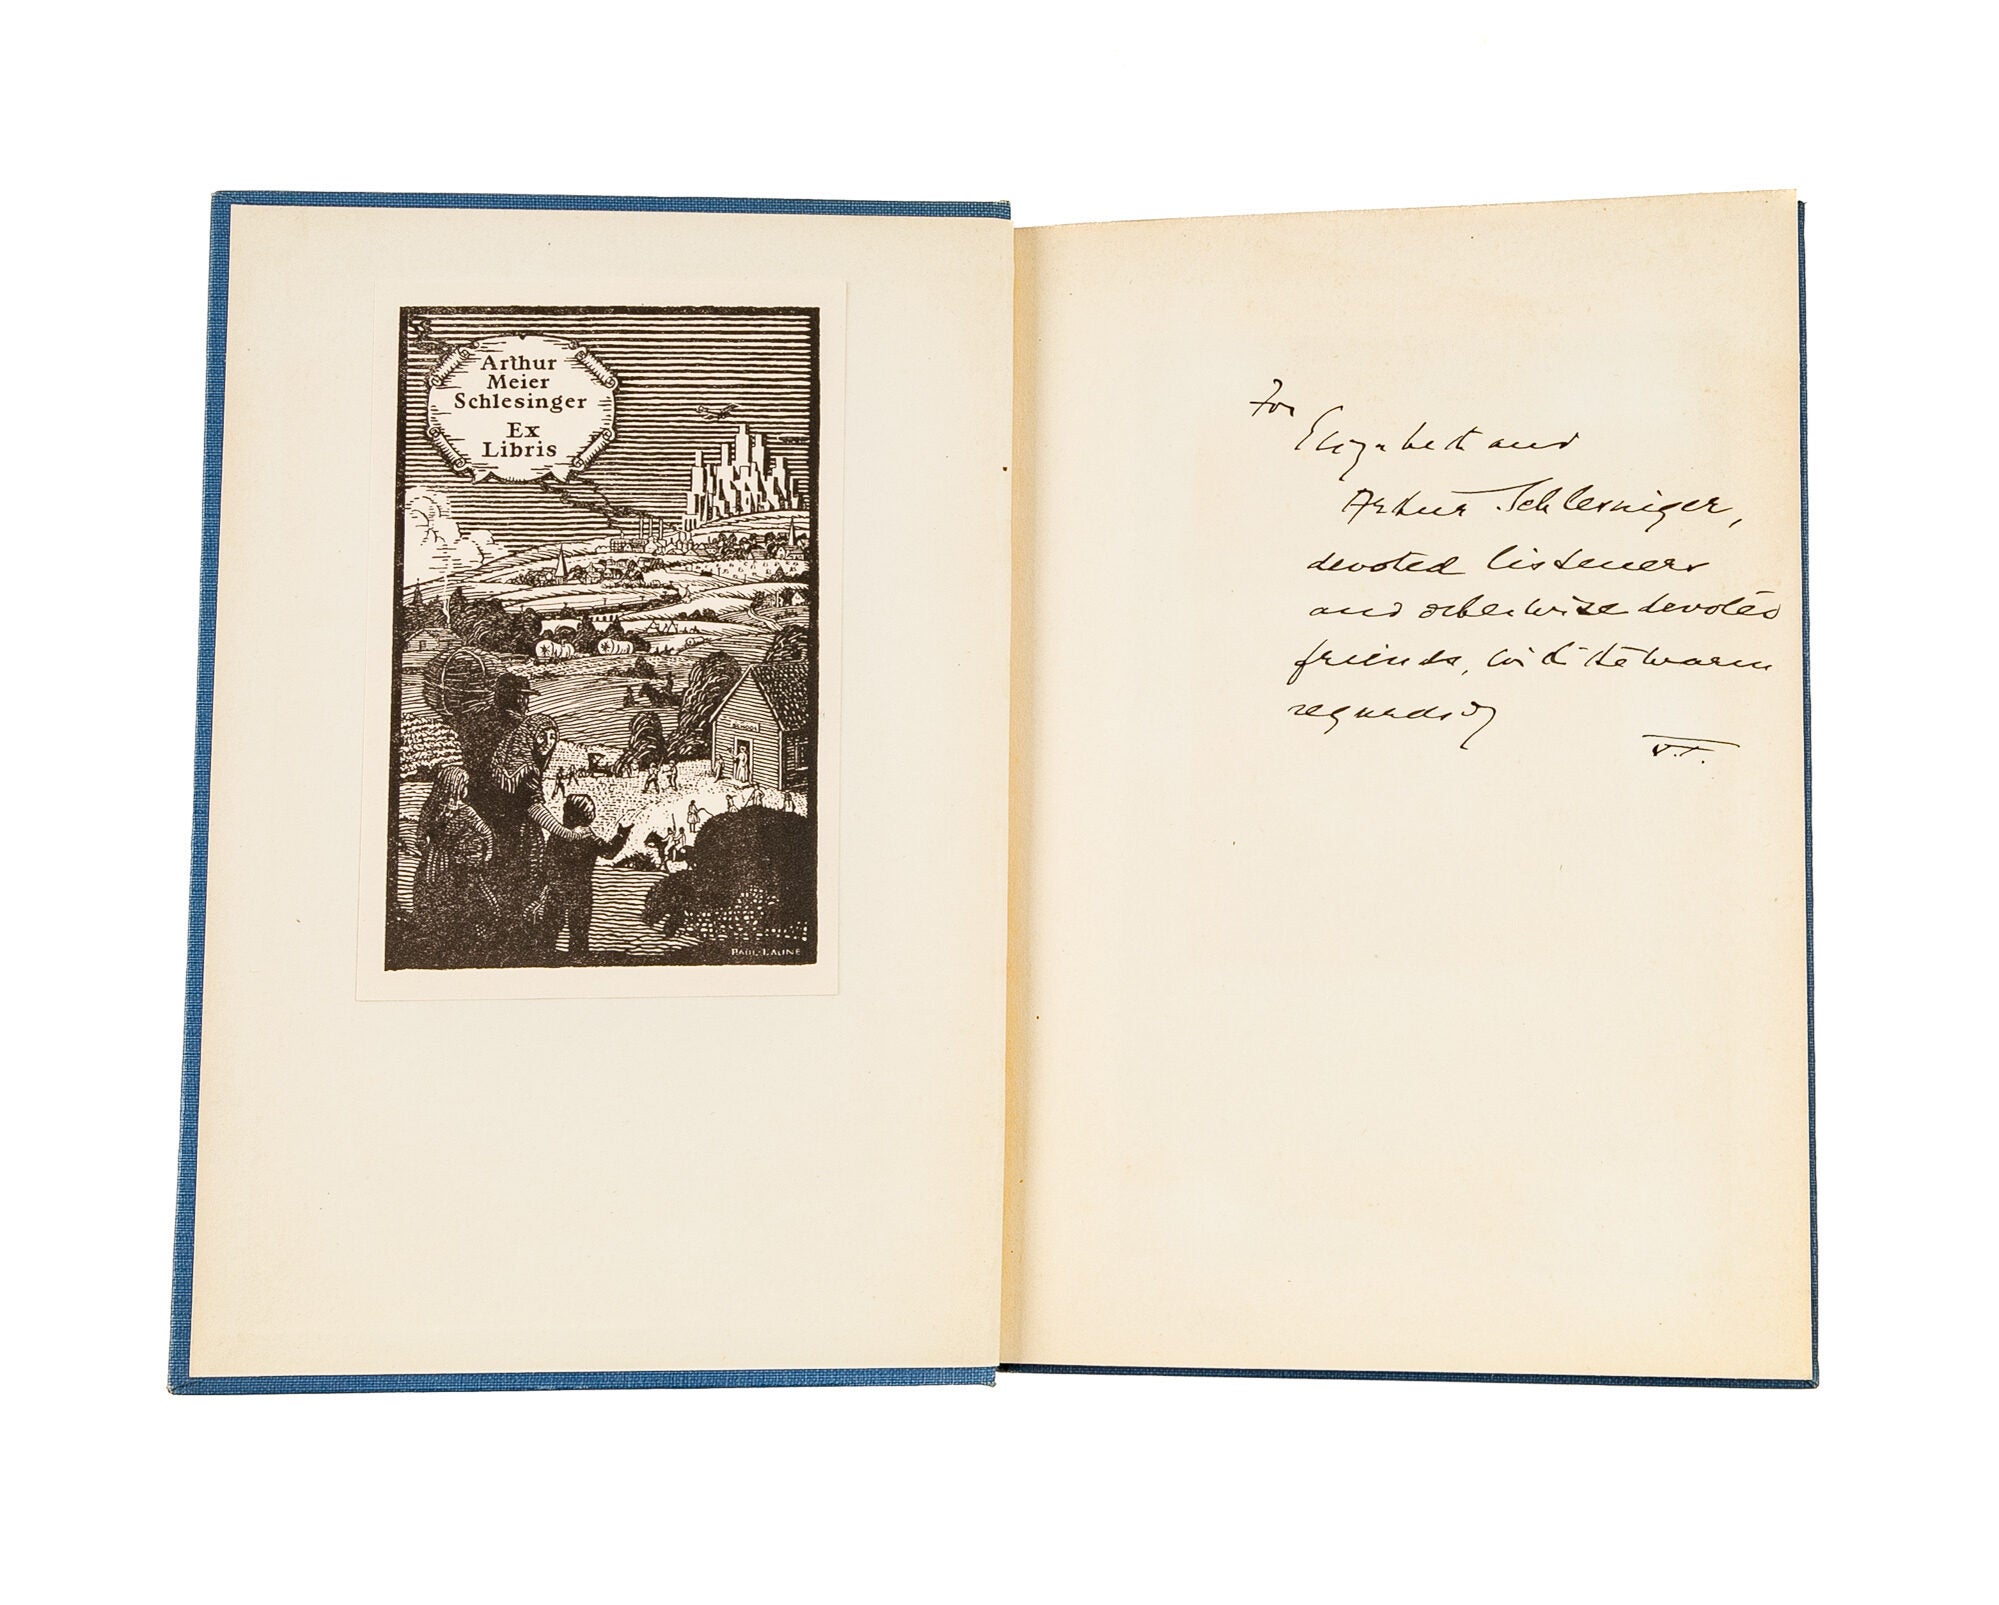 Arthur
Meier
Schlesinger
Ex
Libris
SCHOOL
PAUL·LAUNE
For
Elizabeth and
Arthur Schlesinger,
devoted listeners
and otherwise devoted
friends, with the warm
regards of
V.T.